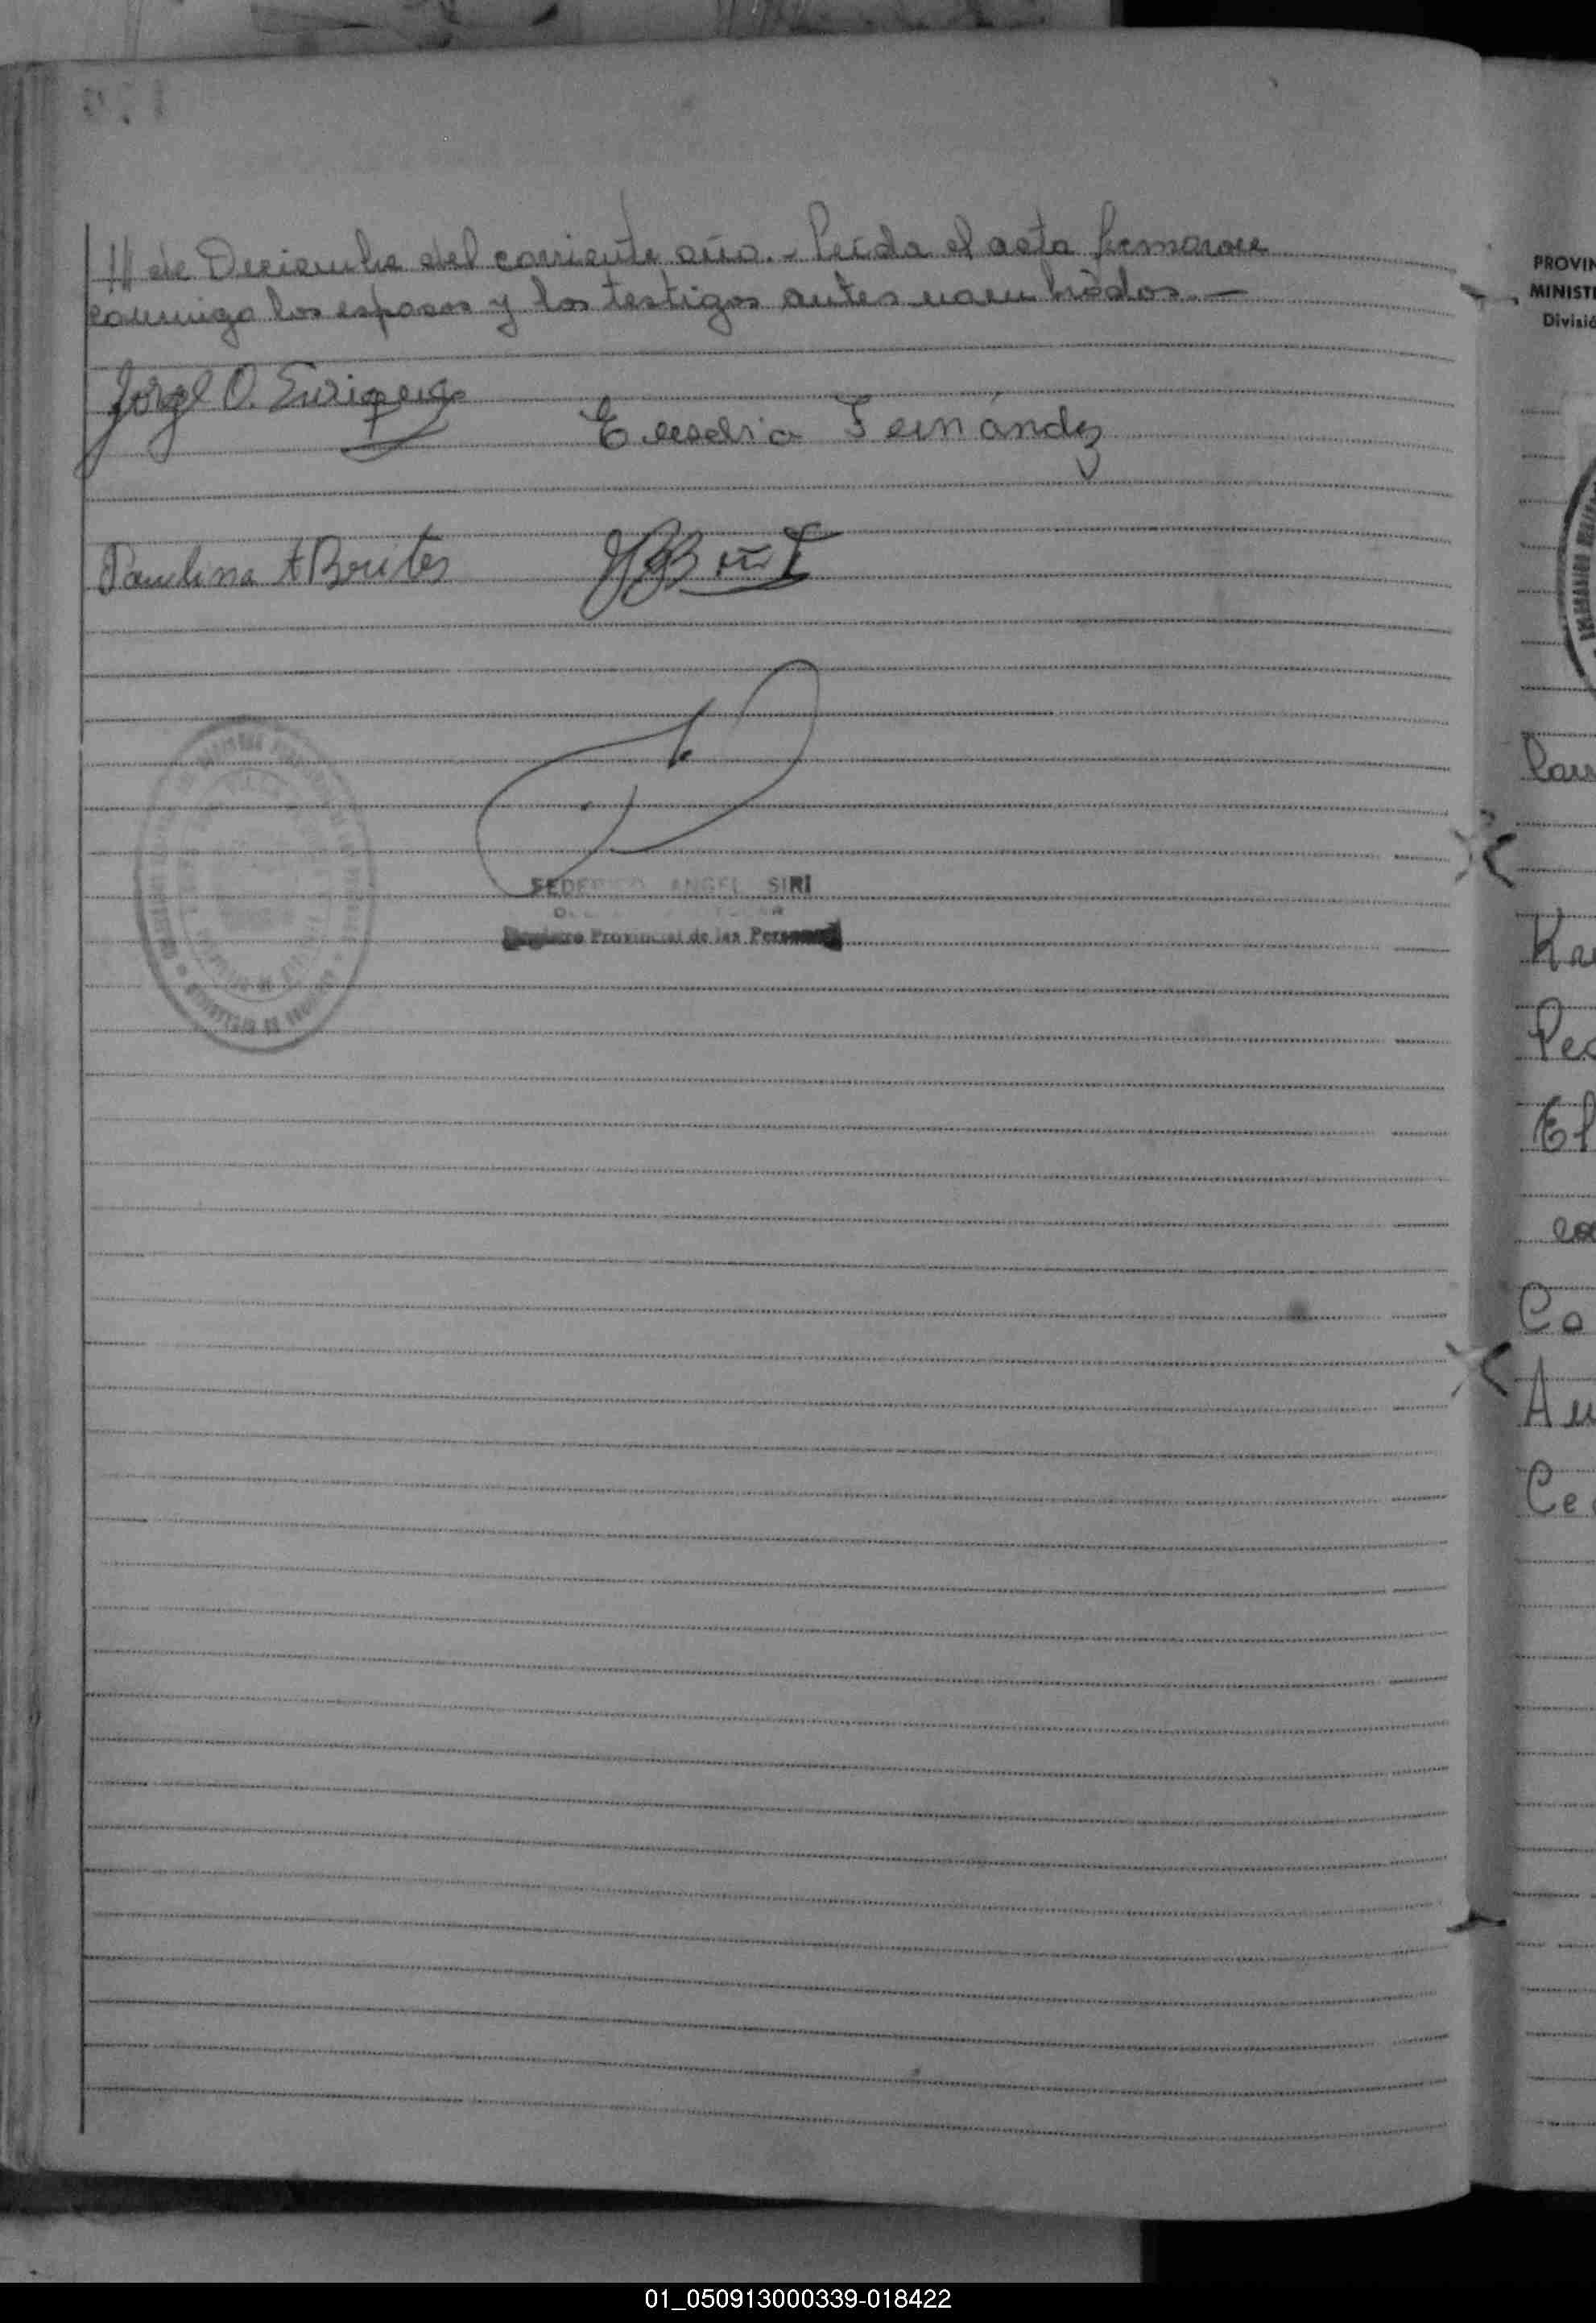 // de Deciembre del corriente año.- Leída el acta firmaron
conmigo los esposos y los testigos antes nombrados.—
Jorge O.
Fernández
Paulina A Benites
FEDERICO ANGEL SIRI
Registro Provincial de las Personas
PROVIN
MINIST
Divisió
Kr
Pe
El
Co
Au
Ce
01_050913000339-018422